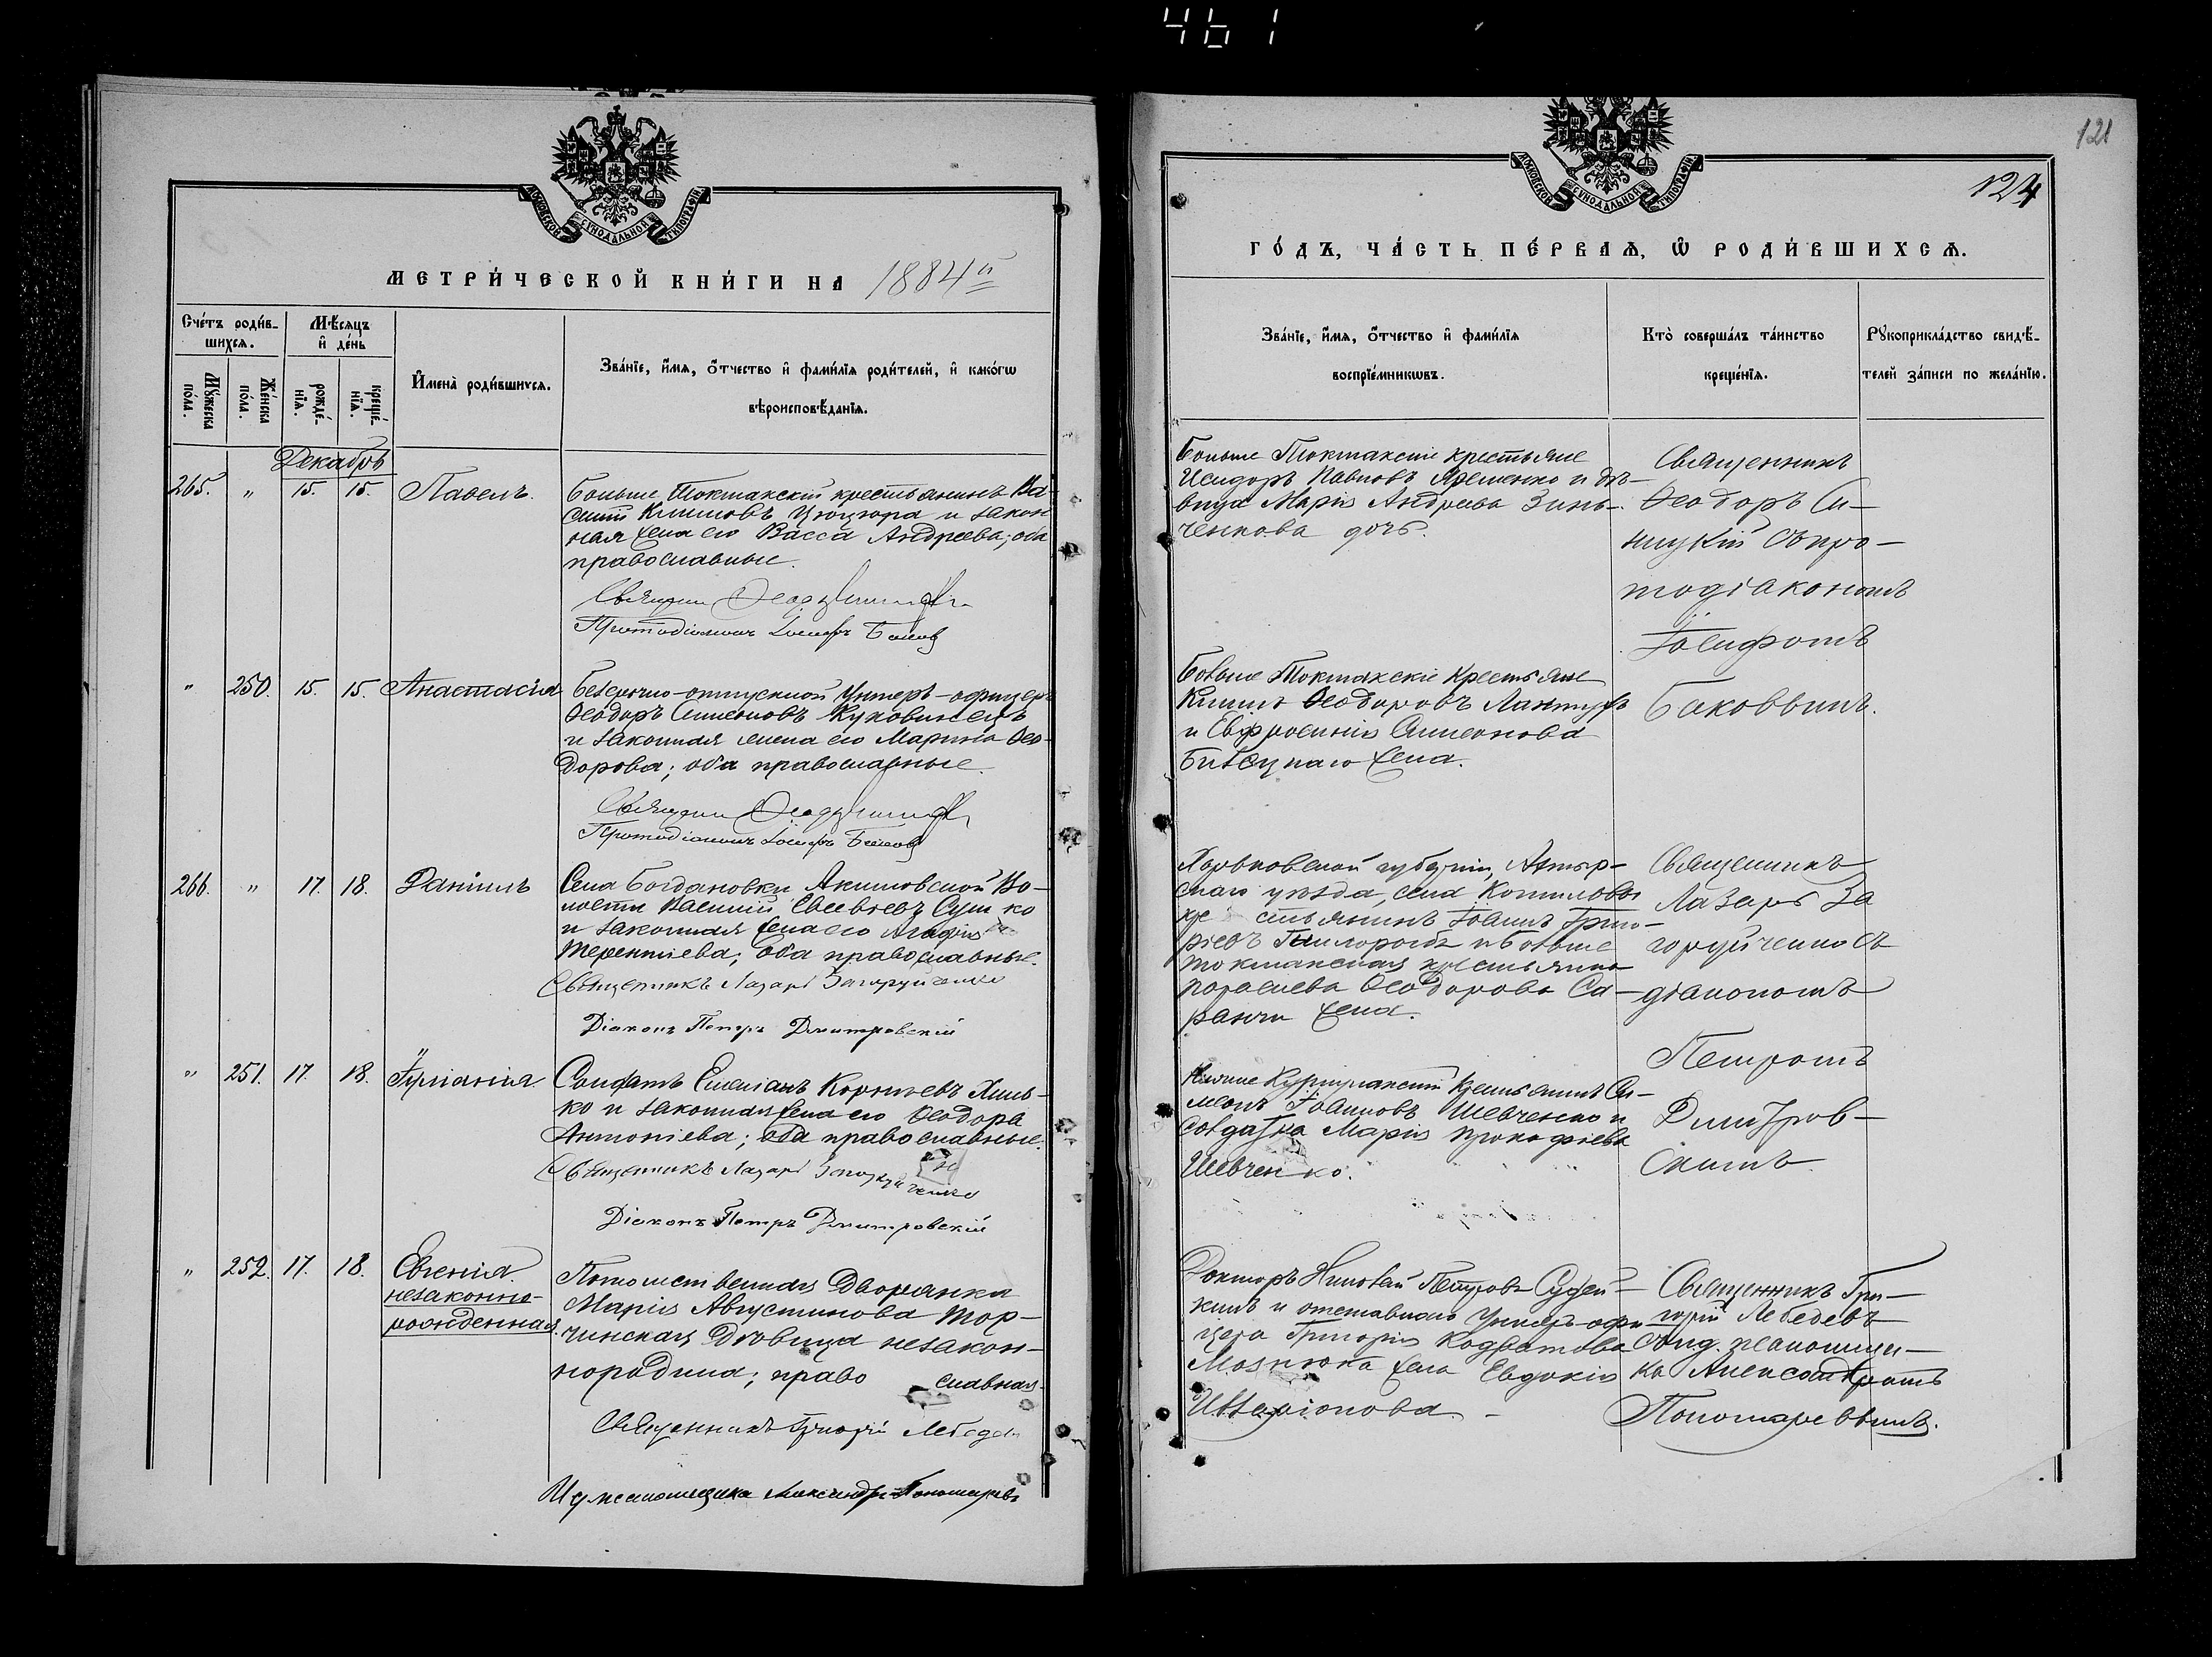 461
МОСКОВСКОЙ СѴНОДАЛЬНОЙ ТИПОГРАФІИ
МЕТРИ́ЧЕСКОЙ КНИ́ГИ НА 1884й
Сче́тъ роди́в-
шихсѧ.
Мѣ́сѧцъ
и҆ де́нь
Мꙋ́жеска
по́ла.
Же́нска
по́ла.
рожде́-
нїѧ.
креще́-
нїѧ.
И҆мена̀ роди́вшихсѧ.
Зва́нїе, и҆́мѧ, ѻ҆́тчество и҆ фами́лїѧ роди́телей, и҆ како́гѡ
вѣроисповѣ́данїѧ.
Декабрь
265. " 15. 15. Павелъ.
Больше Токмакскій крестьянинъ Ва-
силій Климовъ Цюцюра и закон
ная жена его Васса Андреева; оба
православные.
Протодіаконъ Іосифъ
" 250. 15. 15. Анастасія
Безсрочно-отпускной Унтеръ-офицеръ
Ѳеодоръ Симеоновъ
и законная жена его Марина Ѳео-
дорова; оба православные.
Протодіаконъ Іосифъ
266. " 17. 18. Даніилъ
Села Богдановки Акимовской Во-
лости Василій Евсевіевъ Сушко
и законная жена его Агафія
Терентіева; оба православные.
Священникъ Лазарь Загоруйченко
Діаконъ Петръ Дмитровскій
" 251. 17. 18. Іуліанія.
Солдатъ Емеліанъ Корніевъ Хиль-
ко и законная жена его Ѳеодора
Антоніева; оба православные.
Священникъ Лазарь Загоруйченко
Діаконъ Петръ Дмитровскій
" 252. 17. 18. Евгенія.
незаконно-
рожденная.
Потомственная Дворянка
Марія Августинова Тор-
чинская Дѣвица незакон-
но родила; право славная.
Священникъ Григорій Лебедевъ
И д псаломщика Александръ Пономаревъ
121
124
МОСКОВСКОЙ СѴНОДАЛЬНОЙ ТИПОГРАФІИ
ГО́ДЪ, ЧА́СТЬ ПЕ́РВАѦ, Ѡ҆ РОДИ́ВШИХСѦ.
Зва́нїе, и҆́мѧ, ѻ҆́тчество и҆ фами́лїѧ
воспрїе́мникѡвъ.
Кто̀ соверша́лъ та́инство
креще́нїѧ.
Рꙋкоприкла́дство свидѣ́-
телей за́писи по жела́нїю.
Больше Токмакскіе крестьяне
Исидоръ Павловъ Яременко и дѣ-
вица Марія Андреева Зинь-
ченкова дочь.
Священникъ
Ѳеодоръ Си-
ницкій съ про-
тодіакономъ
Іосифомъ
Баковвымъ.
Больше Токмакскіе Крестьяне
Климъ Ѳеодоровъ
и Евфросинія Симеонова
жена.
Харьковской губерніи, Ахтыр-
скаго уѣзда, села Котельвы
кре стьянинъ Іоаннъ Григо-
ріевъ и Больше
токмакская крестьянка
Параскева Ѳеодорова Са-
ранчи жена.
Священникъ
Лазарь За
горуйченко съ
діакономъ
Петромъ
Димитров-
скимъ
Крестьянинъ Си-
меонъ Іоанновъ Шевченко и
солдатка Марія Прокофіева
Шевченко.
Докторъ Николай Петровъ
и отставнаго Унтеръ-офи
цера Григорія Кодратова
жена Евдокія
Илларіонова.
Священникъ Гри-
горій Лебедевъ
съ и.д. псаломщи-
ка Александромъ
Пономаревымъ.